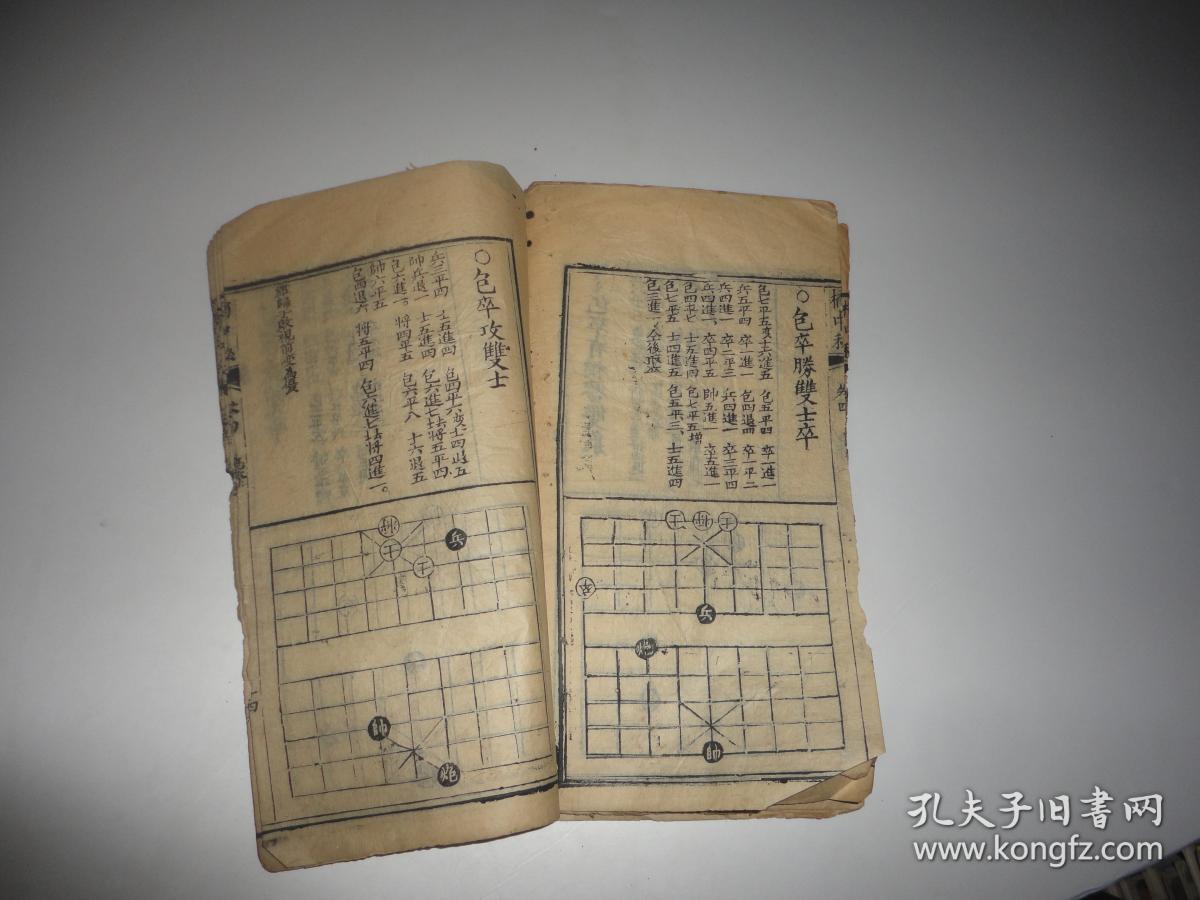 ○包卒勝雙士卒
包七平五变士六進五 包五平四 卒一進一
兵五平四 卒一進一 包四退四 卒一平二
兵四進一 卒二平三 兵四進一 卒三平四
兵四進一 卒四平五 帥五進一 卒五進一
包四平七 士五進四 包七平五增
包七平五 士四進五 包五平三 士五進四
包三進一 今後取勝
帥
士
士
卒
兵
炮
帥
○包卒攻雙士
兵三平四 士五進四 包四平六变士四退五
帥兵退一 士五進四 包六進七去將五平四
包六進一 將四平五 包六平八 士六退五
帥六平五 將五平四 包六進七去將四進一
包四退六
將
士
士
兵
帥
炮
四
孔夫子旧书网
www.kongfz.com